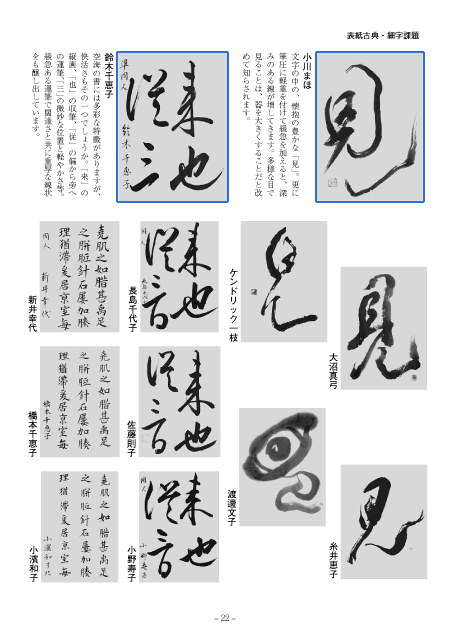 表紙古典・細字課題
小川まほ
文字の中の、懐抱の豊かな「見」。更に
筆圧に軽重を付けて緩急を加えると、深
みのある線が増してきます。多様な目で
見ることは、器を大きくすることだと改
めて知らされます。
見
鈴木千恵子
空海の書には多彩な特徴がありますが、
快活さもその一つでしょうか。「来」の
縦画、「也」の収筆、「従」の偏から旁へ
の運筆、「三」の微妙な位置と軽やかさ等。
緩急ある運筆で闊達さと共に重厚な線状
をも醸し出しています。
来也
従三
準同人 鈴木千恵子
ケンドリック一枝
見
大沼真弓
見
渡邊文子
糸井恵子
見
長島千代子
来也
従音
佐藤則子
来也
従音
小野寿子
来也
従音
新井幸代
堯肌之如腊甚禹足
之胼胝針石屢加腠
理猶滞爰居京室毎
同人 新井幸代
橋本千恵子
堯肌之如腊甚禹足
之胼胝針石屢加腠
理猶滞爰居京室毎
橋本千恵子
小濱和子
堯肌之如腊甚禹足
之胼胝針石屢加腠
理猶滞爰居京室毎
– 22 –